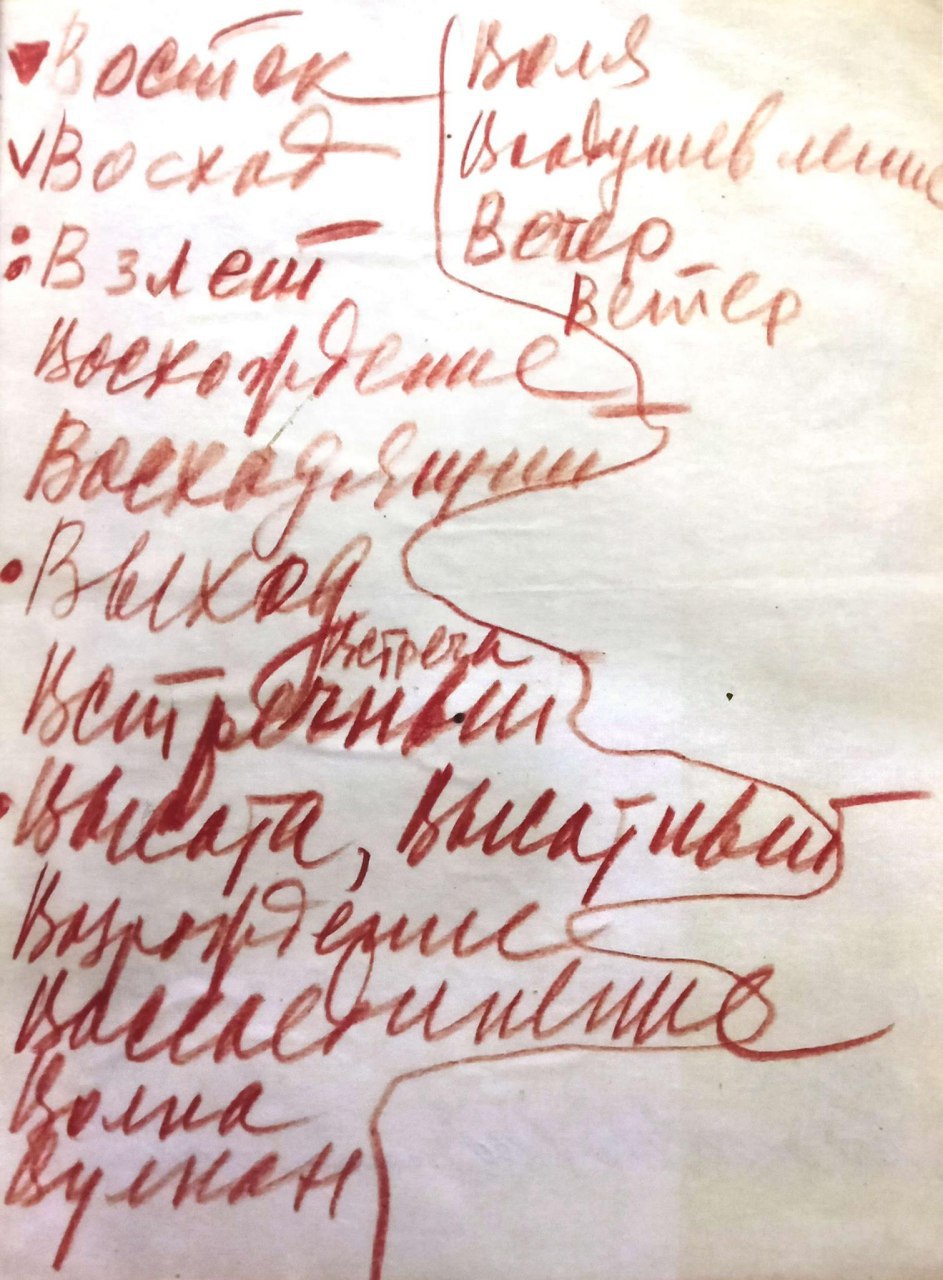 Восток
Восход
Взлет
Восхождение
Восходящий
Выход
Встреча
Встречный
Высота, Высотный
Возрождение
Воссоединение
Волна
Вулкан
Воля
Воодушевление
Ветер
Ветер